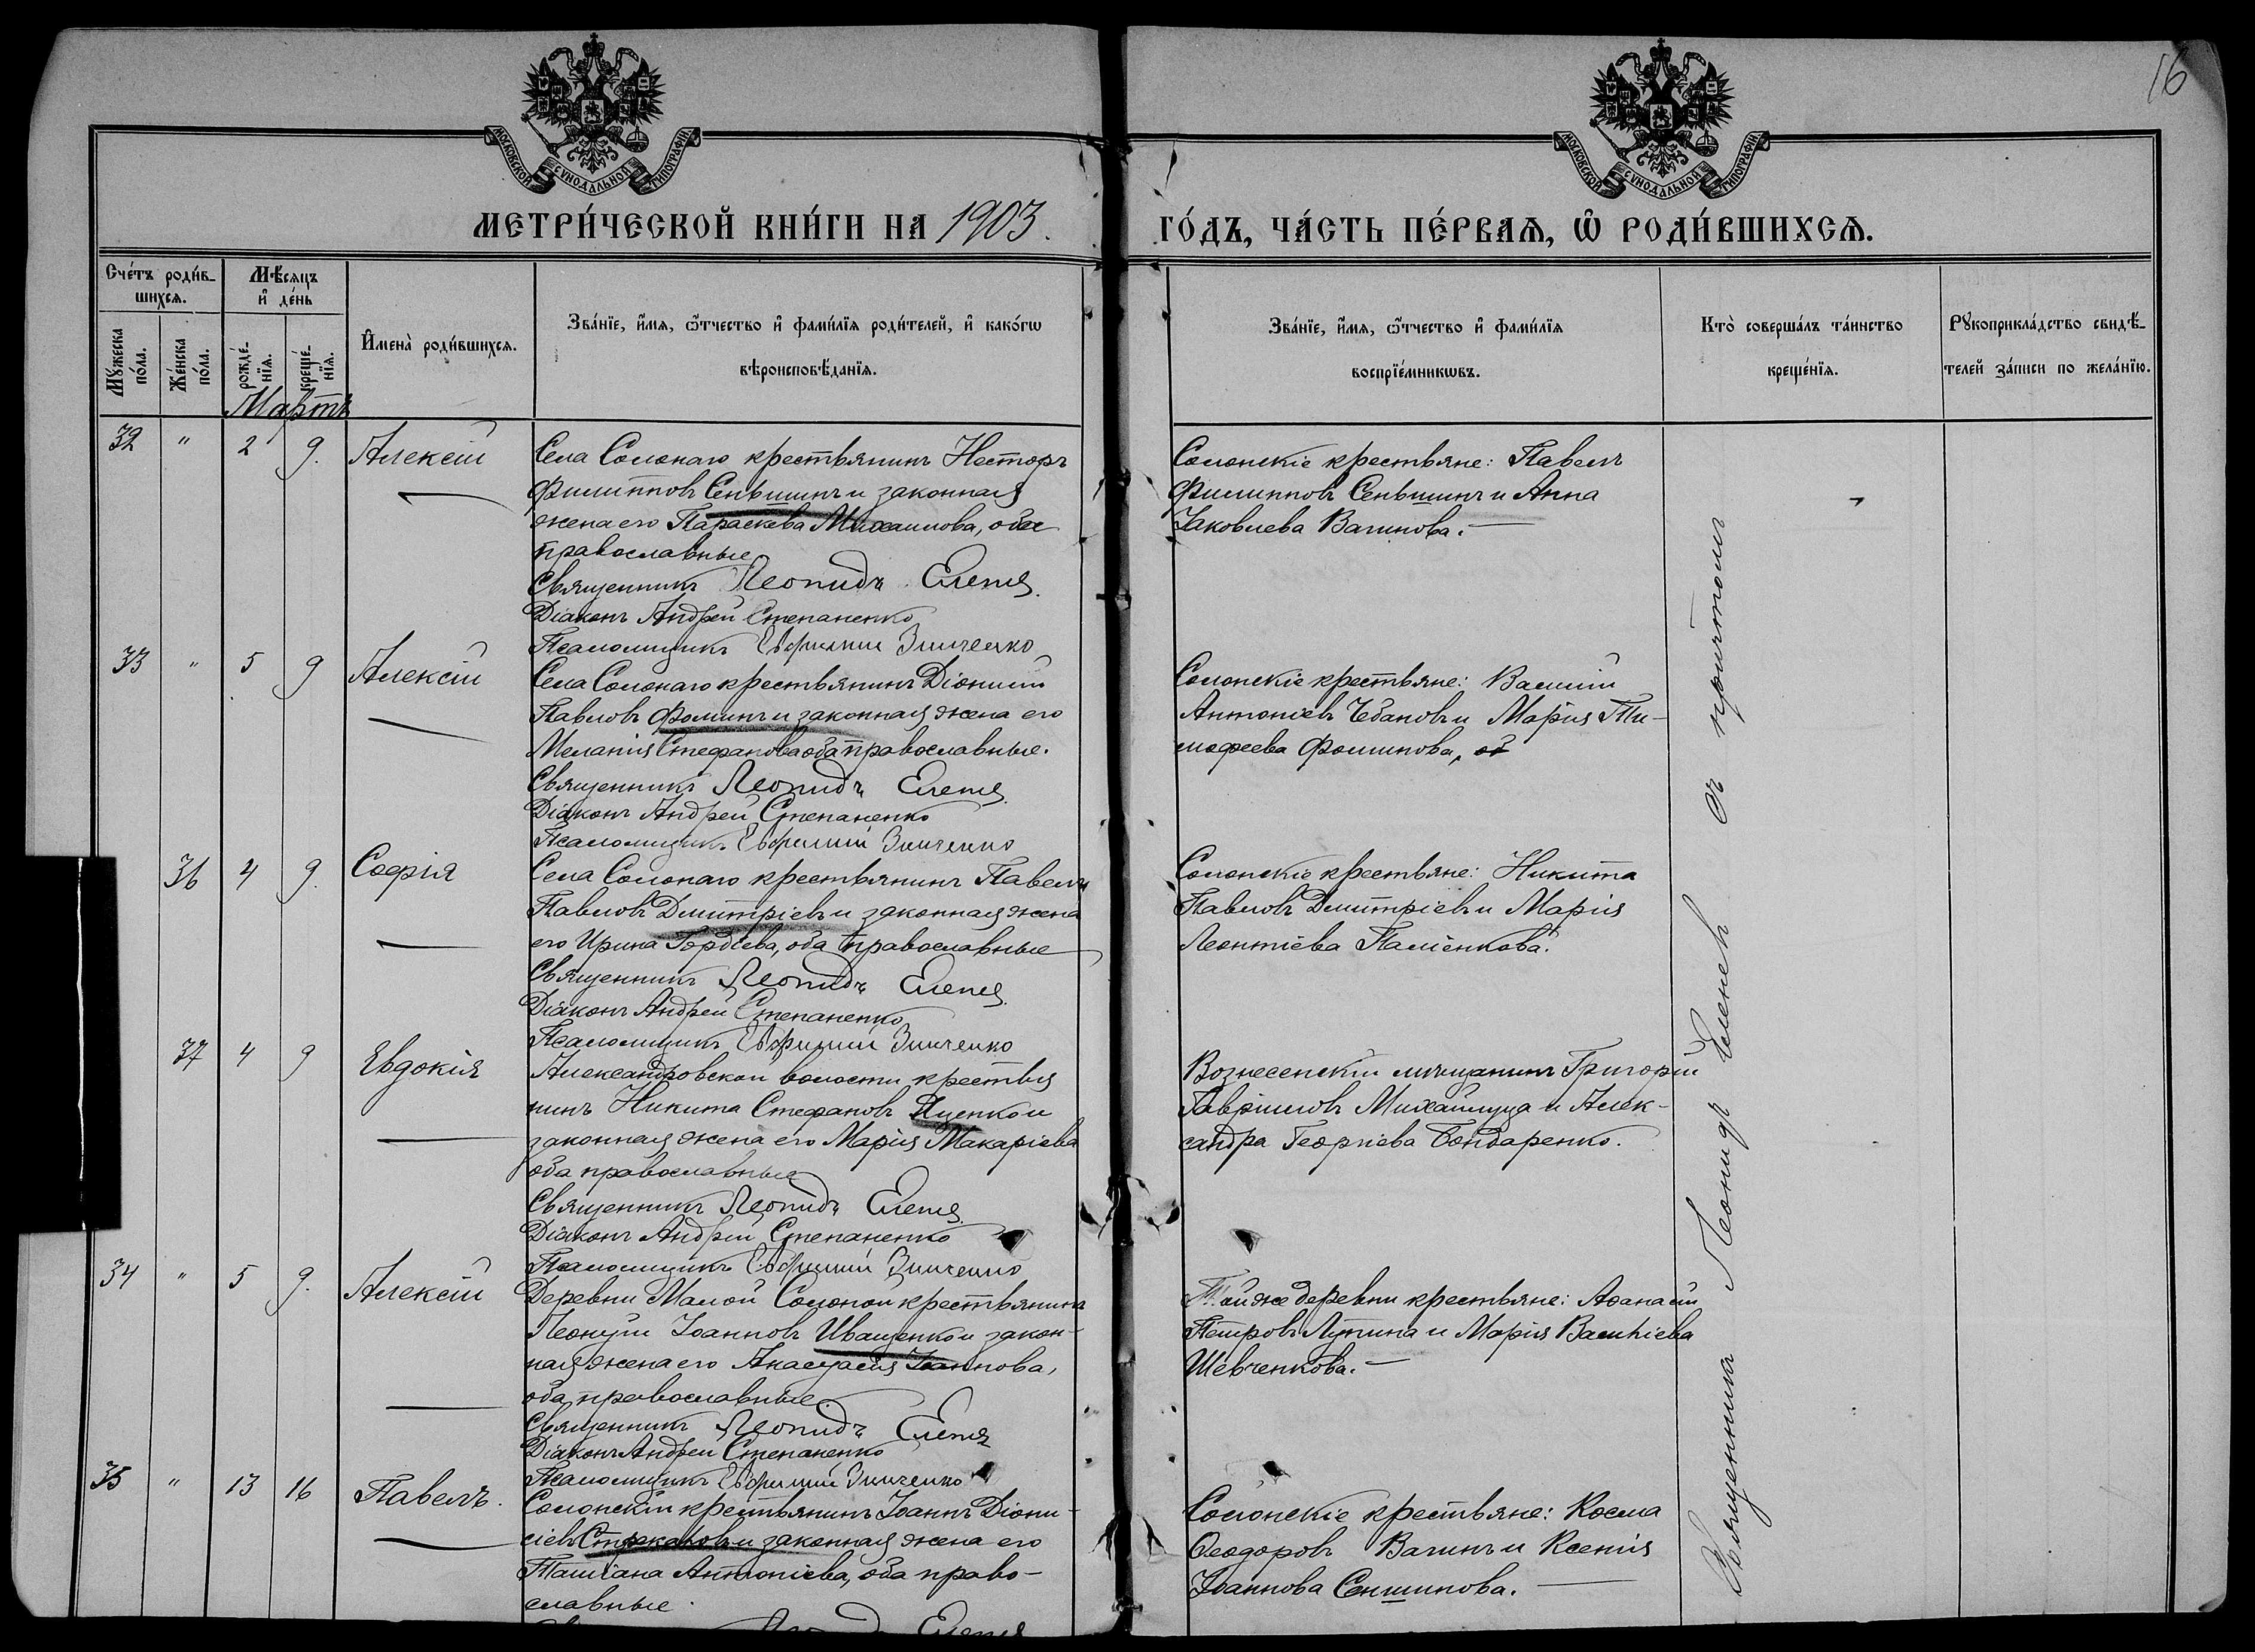 16
МОСКОВСКОЙ СѴНОДАЛЬНОЙ ТИПОГРАФІИ.
МОСКОВСКОЙ СѴНОДАЛЬНОЙ ТИПОГРАФІИ.
МЕТРИ́ЧЕСКОЙ КНИ́ГИ НА 1903.
ГО́ДЪ, ЧА́СТЬ ПЕ́РВАѦ, Ѡ҆ РОДИ́ВШИХСѦ.
Сче́тъ роди́в-
шихсѧ.
Мꙋ́жеска по́ла.
Же́нска по́ла.
Мѣ́сѧцъ
и҆ де́нь
рожде́-
нїѧ.
креще́-
нїѧ.
И҆мена̀ роди́вшихсѧ.
Зва́нїе, и҆́мѧ, ѻ҆́тчество и҆ фами́лїѧ роди́телей, и҆ како́гѡ
вѣроисповѣ́данїѧ.
Зва́нїе, и҆́мѧ, ѻ҆́тчество и҆ фами́лїѧ
воспрїе́мникѡвъ.
Кто̀ соверша́лъ та́инство
креще́нїѧ.
Рꙋкоприкла́дство свидѣ́-
телей за́писи по жела́нїю.
Мартъ
32 " 2 9. Алексій
Села Солонаго крестьянинъ Несторъ
Филипповъ Сеньшинъ и законная
жена его Параскева Михаилова, оба
православные
Священникъ Леонидъ
Діаконъ Андрей Степаненко
Псаломщикъ Евфимій Зинченко
Солонскіе крестьяне: Павелъ
Филипповъ Сеньшинъ и Анна
Іаковлева Вагинова.
33 " 5 9 Алексій
Села Солонаго крестьянинъ Діонисій
Павловъ Фоминъ и законная жена его
Меланія Стефанова оба православные.
Священникъ Леонидъ
Діаконъ Андрей Степаненко
Псаломщикъ Евфимій Зинченко
Солонскіе крестьяне: Василій
Антоніевъ Чебановъ и Марія Ти-
мофеева Фоминова,
36 4 9. Софія
Села Солонаго крестьянинъ Павелъ
Павловъ Димитріевъ и законная жена
его Ирина Гордіева, оба православные
Священникъ Леонидъ
Діаконъ Андрей Степаненко
Псаломщикъ Евфимій Зинченко
Солонскіе крестьяне: Никита
Павловъ Димитріевъ и Марія
Леонтіева
37 4 9 Евдокія
Александровской волости крестья
нинъ Никита Стефановъ Яценко и
законная жена его Марія Макаріева
оба православные
Священникъ Леонидъ
Діаконъ Андрей Степаненко
Псаломщикъ Евфимій Зинченко
Вознесенскій мѣщанинъ Григорій
Гавріиловъ Михайлуца и Алек-
сандра Георгіева Бондаренко.
34 " 5 9. Алексій
Деревни Малой Солоной крестьянинъ
Іоанновъ Иващенко и закон-
ная жена его Анастасія Іоаннова,
оба православные.
Священникъ Леонидъ
Діаконъ Андрей Степаненко
Псаломщикъ Евфимій Зинченко
Той же деревни крестьяне: Аѳанасій
Петровъ Лупина и Марія Василіева
Шевченкова.
35 " 13 16 Павелъ.
Солонскій крестьянинъ Іоаннъ Діони-
сіевъ Стрекаловъ и законная жена его
Татіана Антоніева, оба право-
славные.
Солонскіе крестьяне: Косма
Ѳеодоровъ Вагинъ и Ксенія
Іоаннова Сеншинова.
Священникъ Леонидъ съ причтомъ